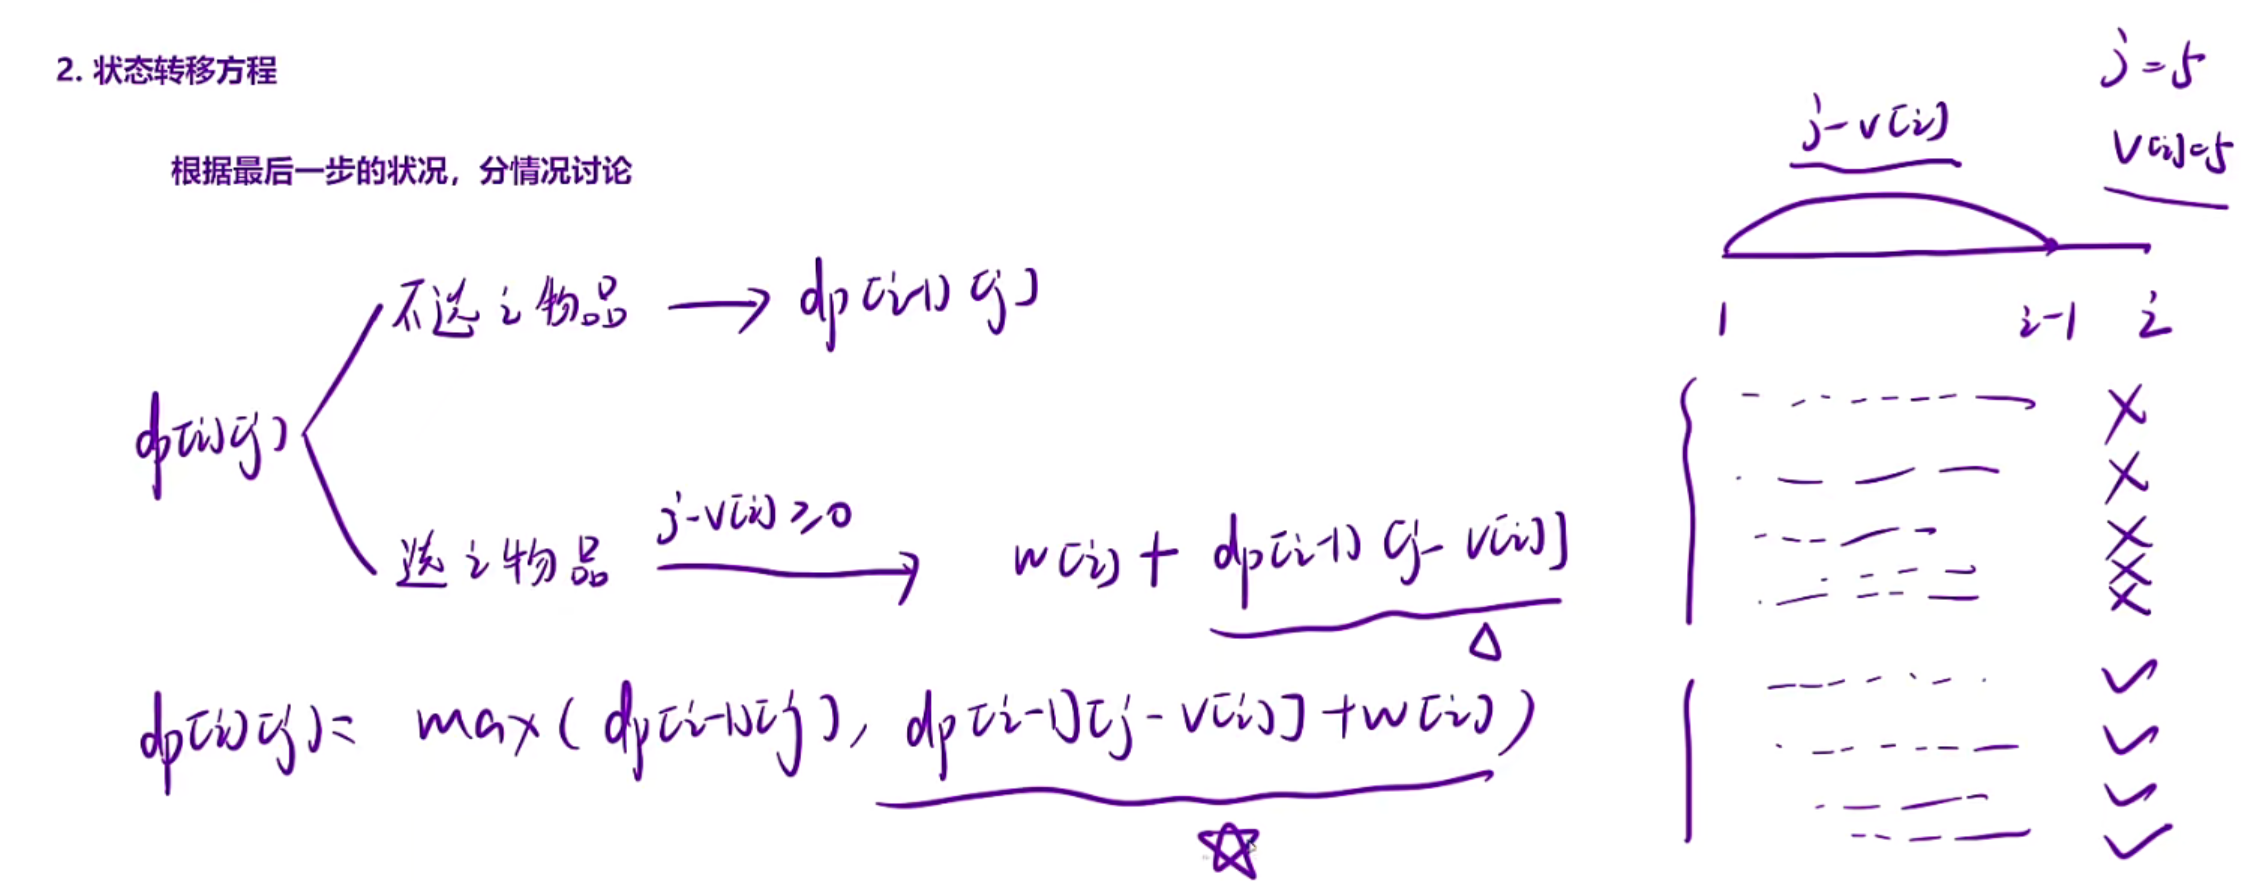 2. 状态转移方程
根据最后一步的状况，分情况讨论
j=5
j-v[i]
v[i]=5
1 i-1 i
不选i物品 → dp[i-1][j]
dp[i][j]
选i物品 j-v[i]≥0 → w[i] + dp[i-1][j-v[i]]
dp[i][j]= max( dp[i-1][j], dp[i-1][j-v[i]]+w[i])